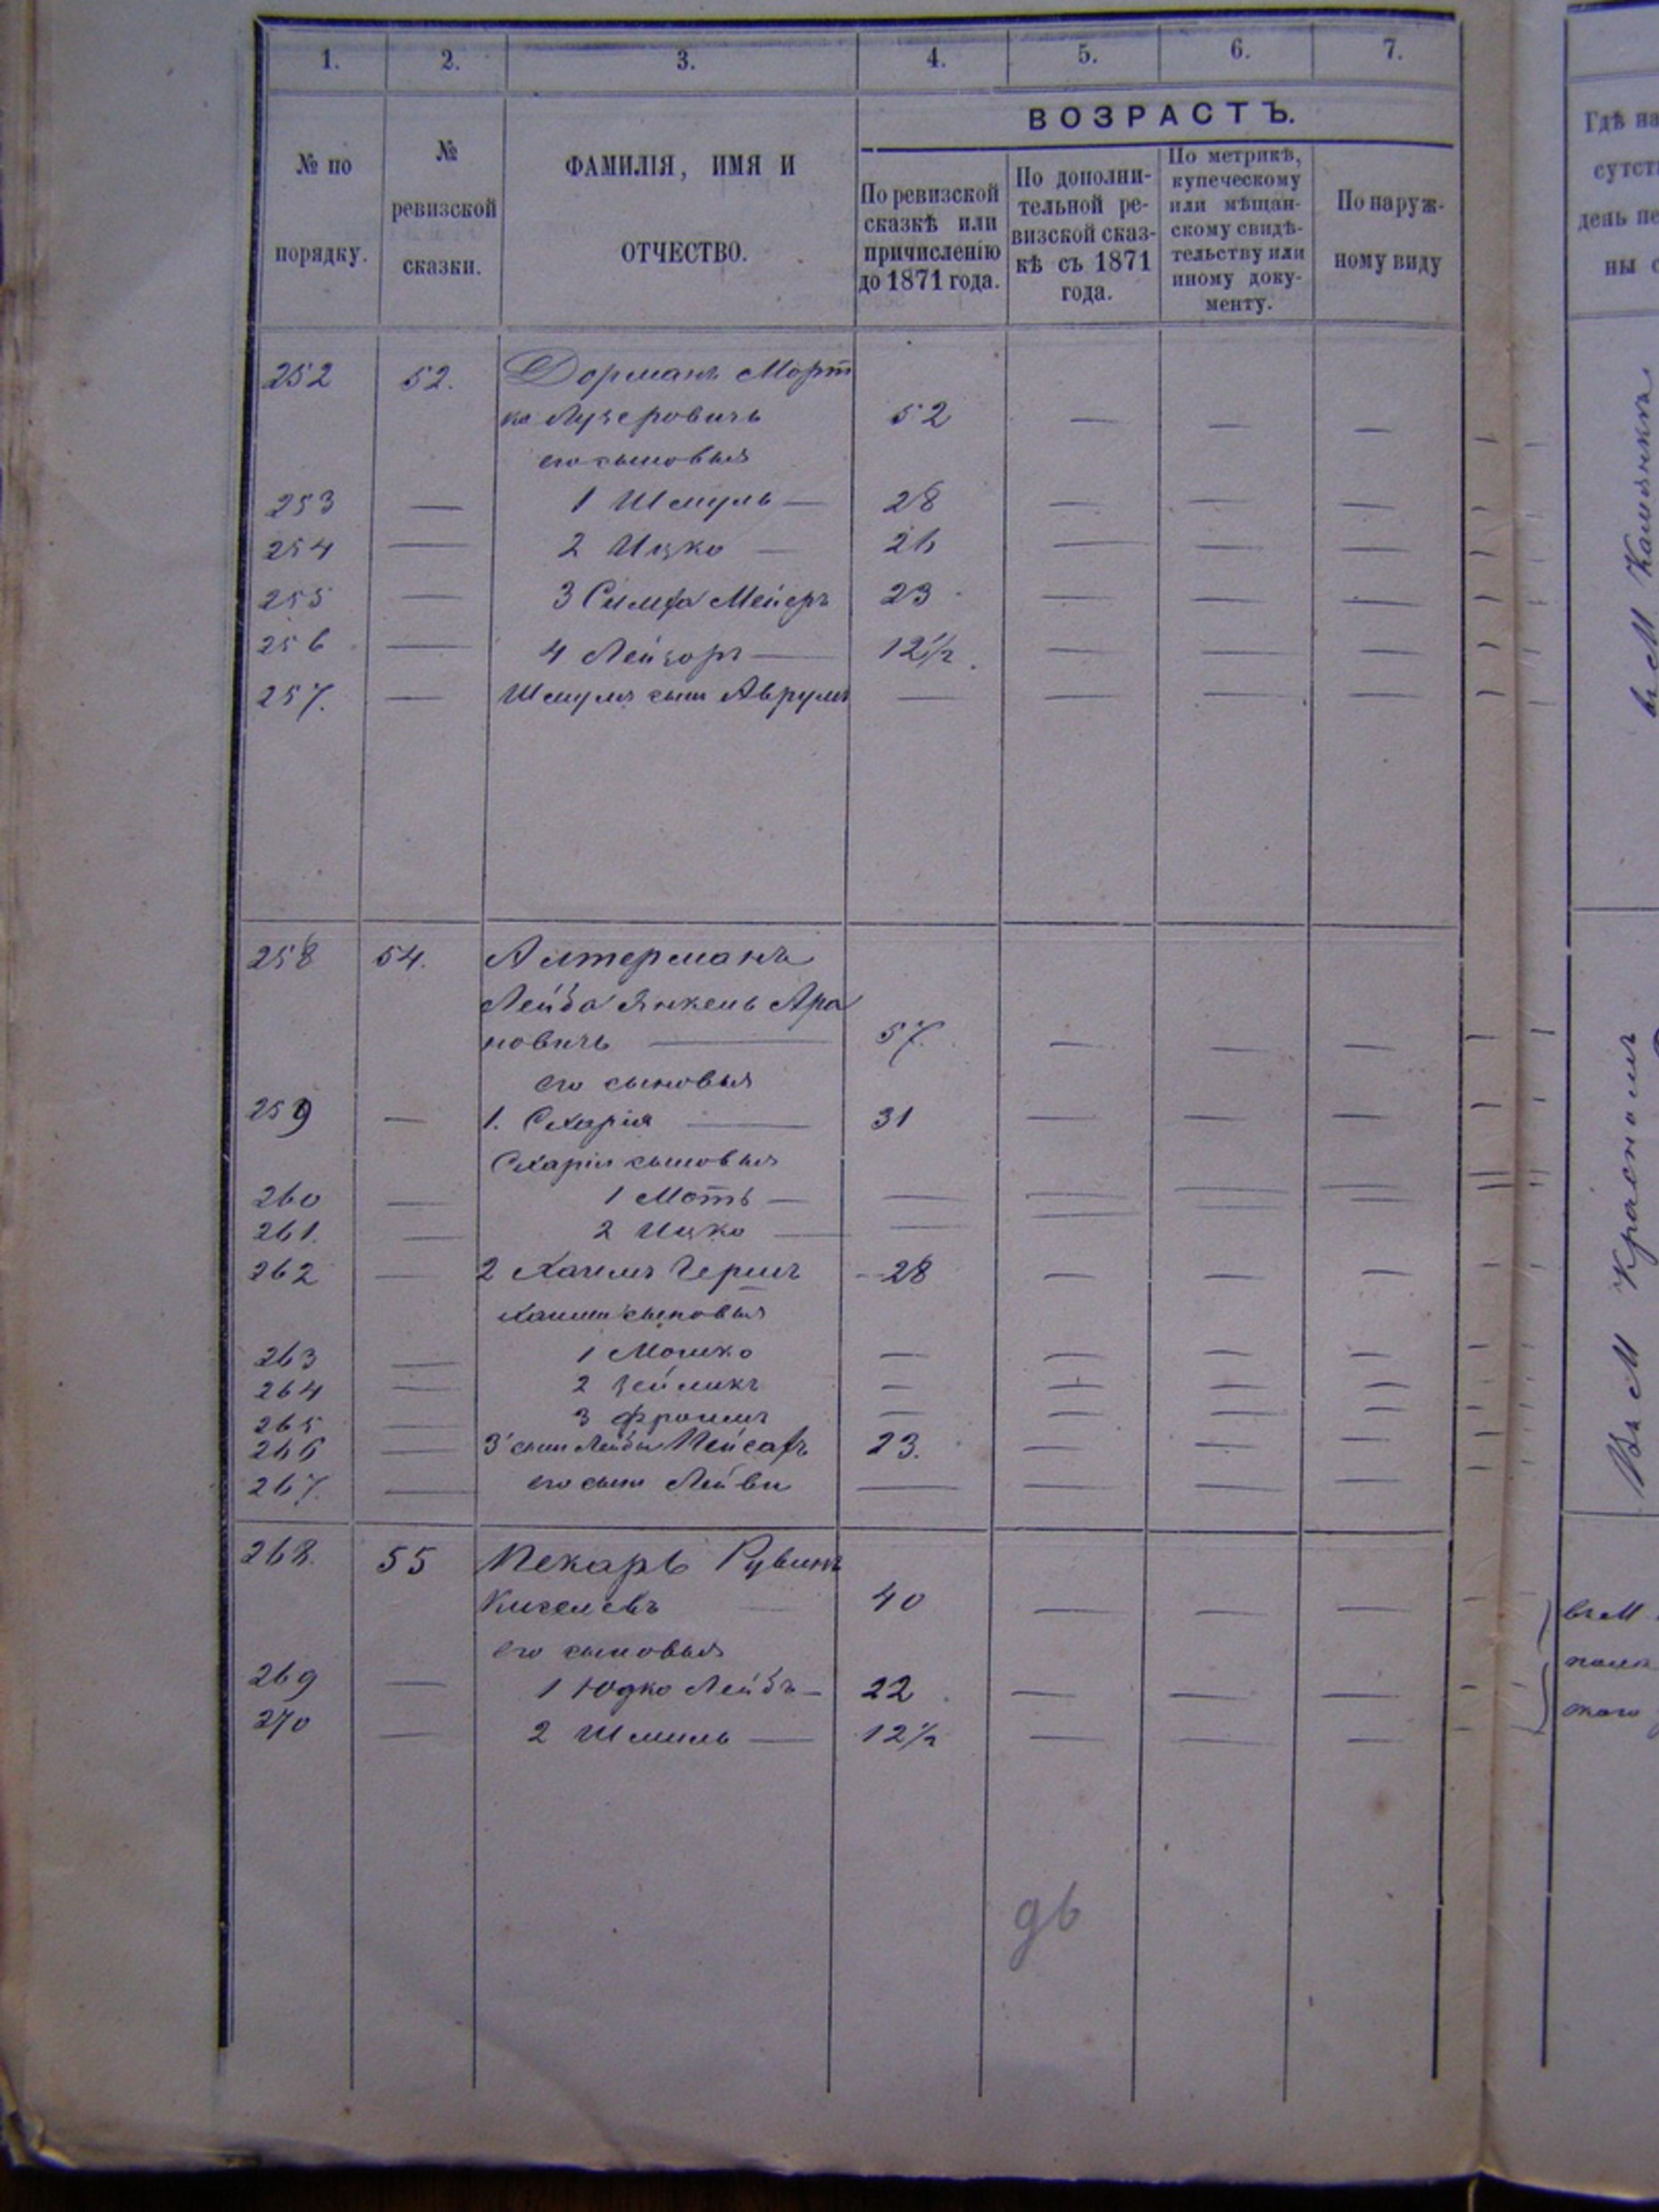 1. 2. 3. 4. 5. 6. 7.
№ по порядку.
№ ревизской сказки.
ФАМИЛІЯ, ИМЯ И ОТЧЕСТВО.
ВОЗРАСТЪ.
По ревизской сказкѣ или причисленію до 1871 года.
По дополни-
тельной ре-
визской сказ-
кѣ съ 1871
года.
По метрикѣ,
купеческому
или мѣщан-
скому свидѣ-
тельству или
иному доку-
менту.
По наруж-
ному виду
252 52. Дорманъ Морт
ко Лузеровичъ 52 — — —
его сыновья
253 — 1 Шмуль — 28 — — —
254 — 2 Ицко — 26 — — —
255 — 3 Симха Мейеръ 23 — — —
256 — 4 Лейзоръ — 12½ — — —
257. — Шмуля сынъ Аврумъ — — — —
258 54. Алтерманъ
Лейба Янкель Аро
новичъ — 57. — — —
его сыновья
259 — 1. Схарія — 31 — — —
Схарія сыновья
260 — 1 Моть — — — — —
261. — 2 Ицко — — — — —
262 — 2 Хаимъ Гершъ — 28 — — —
Хаима сыновья
263 — 1 Мошко — — — —
264 — 2 Зейликъ — — — —
265 — 3 Фроимъ — — — —
266 — 3 сынъ Лейбы Пейсахъ 23. — — —
267. — его сынъ Лейви — — — —
268. 55 Пекарь Рувинъ
Киселевъ 40 — — —
его сыновья
269 — 1 Юдко Лейбъ — 22 — — —
270 — 2 Шмиль — 12½ — — —
Гдѣ на
сутст
день
ны с
въ М
Въ М Красномъ
въ М